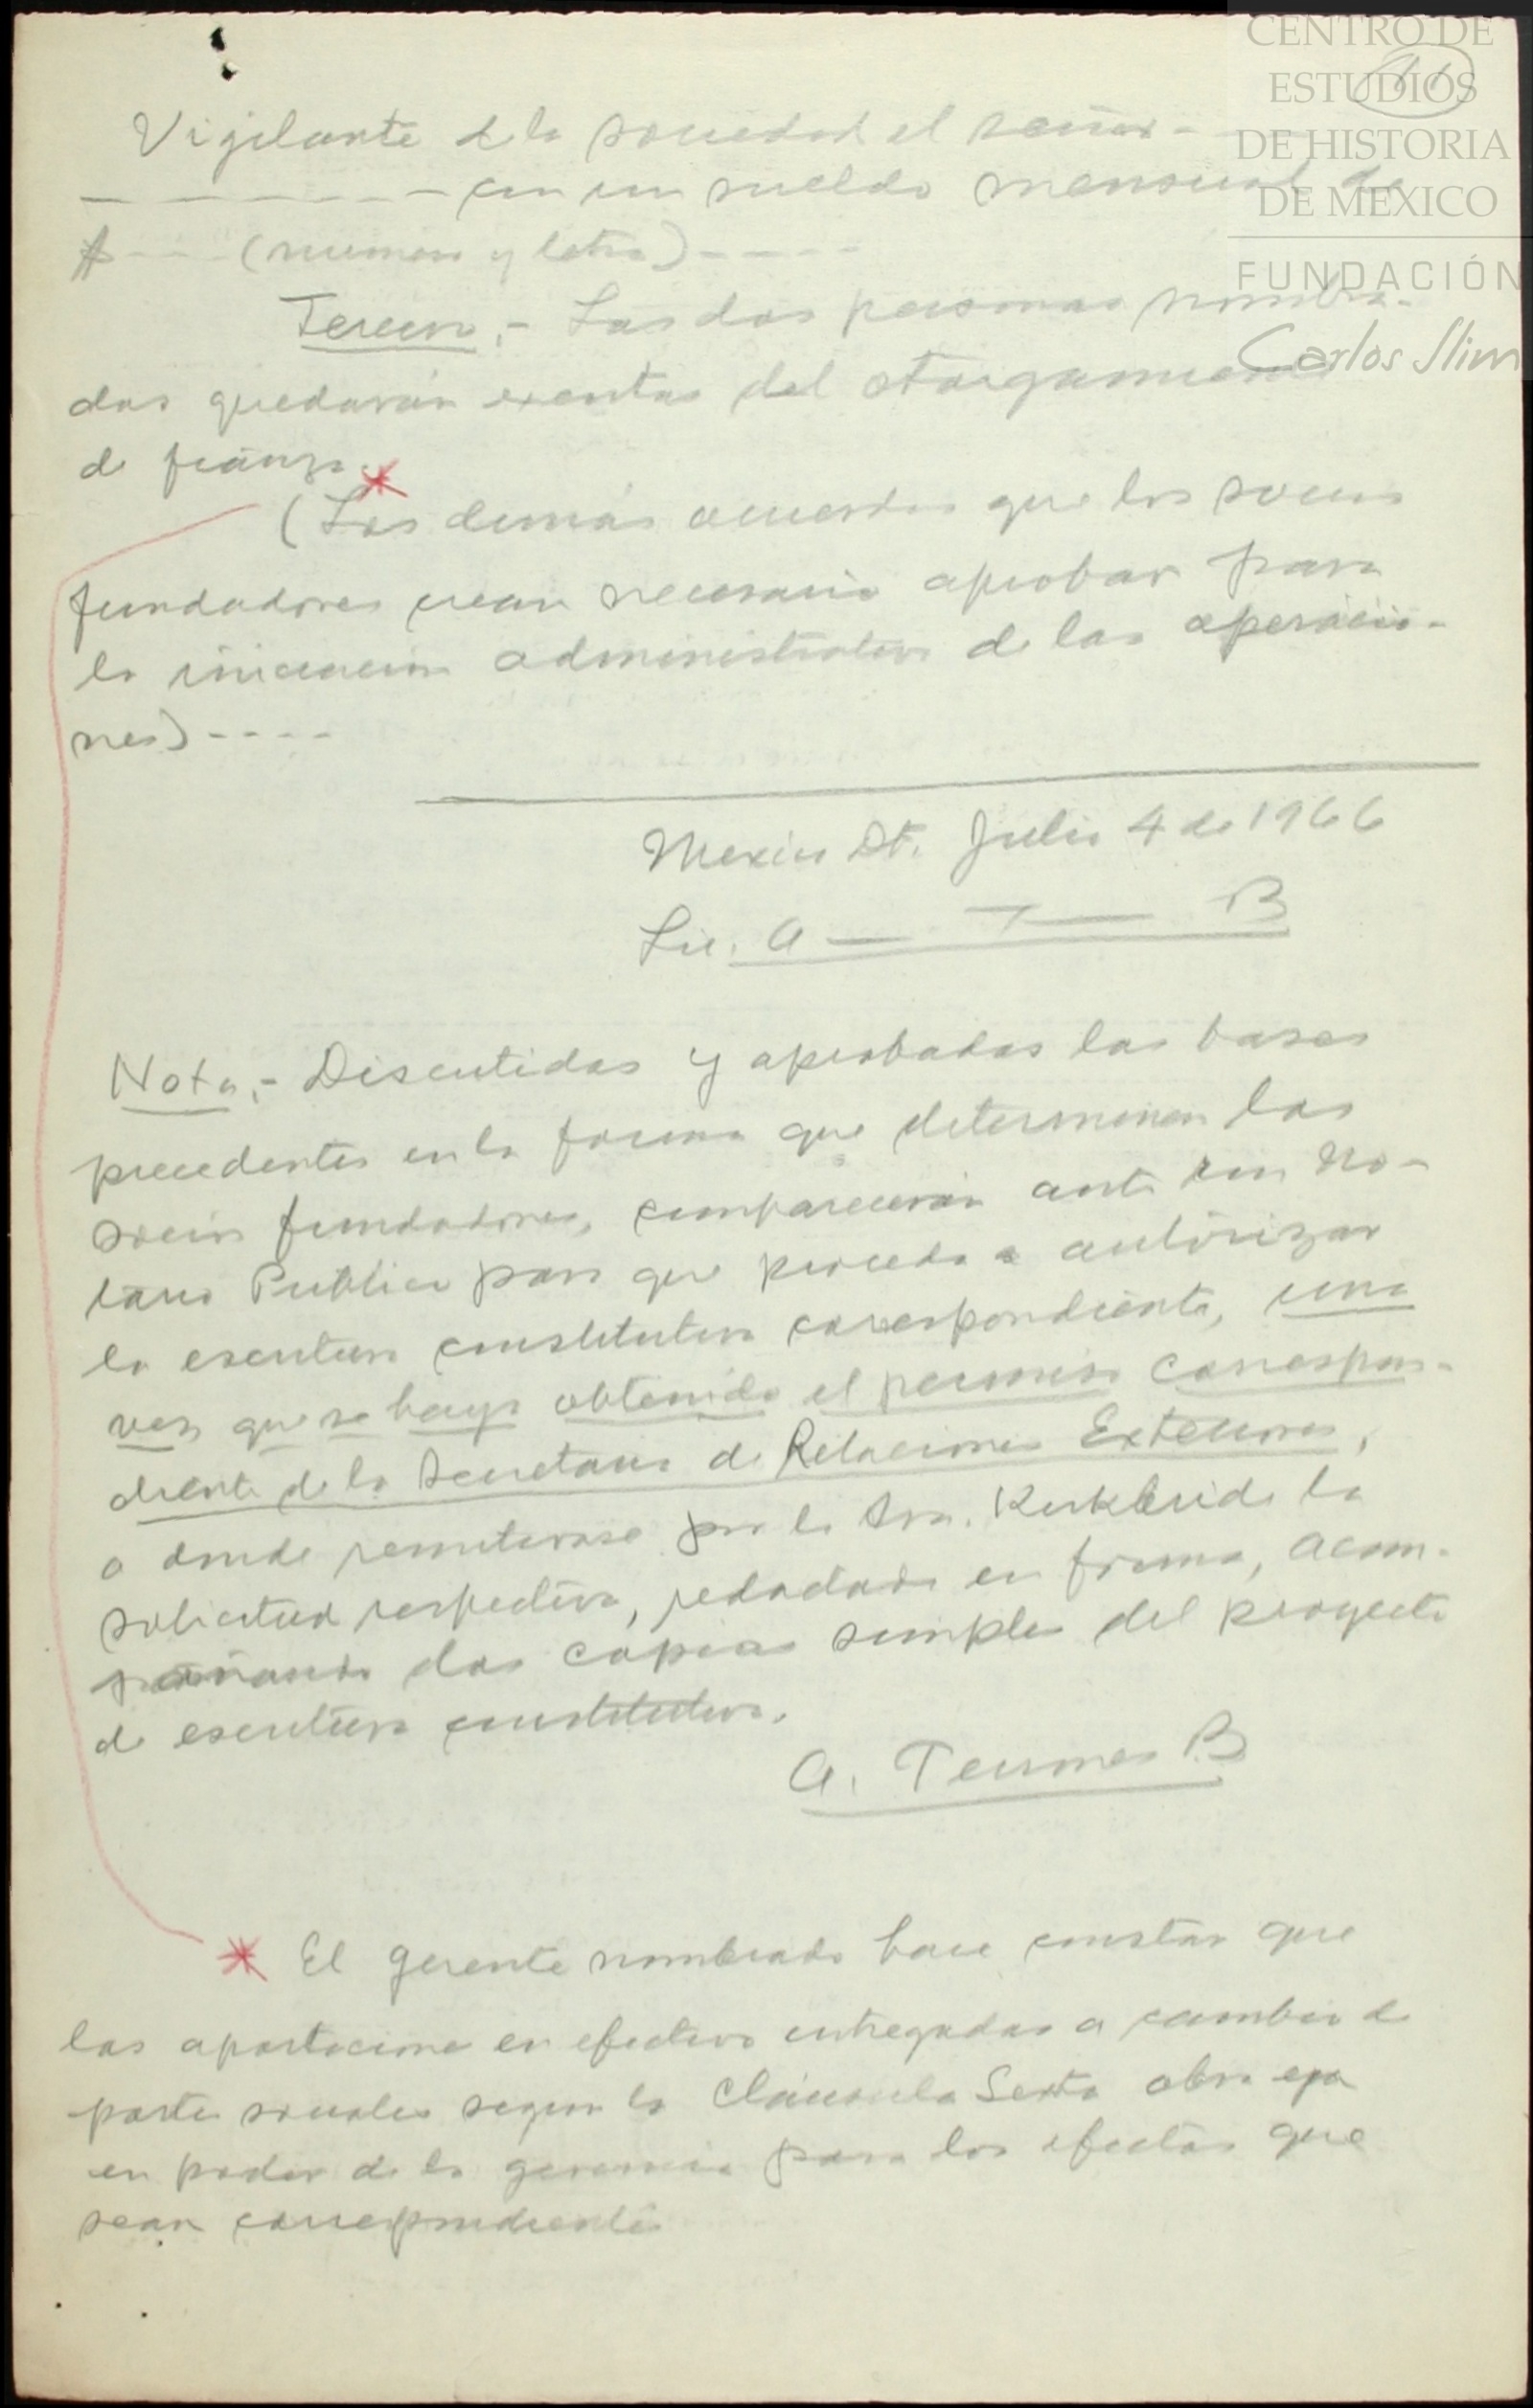 CENTRO DE
ESTUDIOS
DE HISTORIA
DE MEXICO
FUNDACIÓN
Carlos Slim
11
Vigilante de la sociedad el señor -
- - - - - - con un sueldo mensual de
$ - - - (numero y letra) - - - -
Tercera.- Las dos personas nombra-
das quedarán exentas del otorgamiento
de fianza. *
(Los demás acuerdos que los socios
fundadores crean necesario aprobar para
la iniciación administrativa de las operacio-
nes) - - - -
Mexico D.F. Julio 4 de 1966
Lic. A — T — B
Nota.- Discutidas y aprobadas las bases
precedentes en la forma que determinen los
socios fundadores, comparecerán ante un No-
tario Publico para que proceda a autorizar
la escritura constitutiva correspondiente, una
vez que se haya obtenido el permiso correspon-
diente de la Secretaria de Relaciones Exteriores,
a donde remitirase por la Sra. Kirkbride la
solicitud respectiva, redactada en forma, acom-
pañando dos copias simples del proyecto
de escritura constitutiva.
A. Termes B
* El gerente nombrado hace constar que
las aportaciones en efectivo entregadas a cambio de
partes sociales segun la Cláusula Sexta obra ya
en poder de la gerencia para los efectos que
sean correspondientes